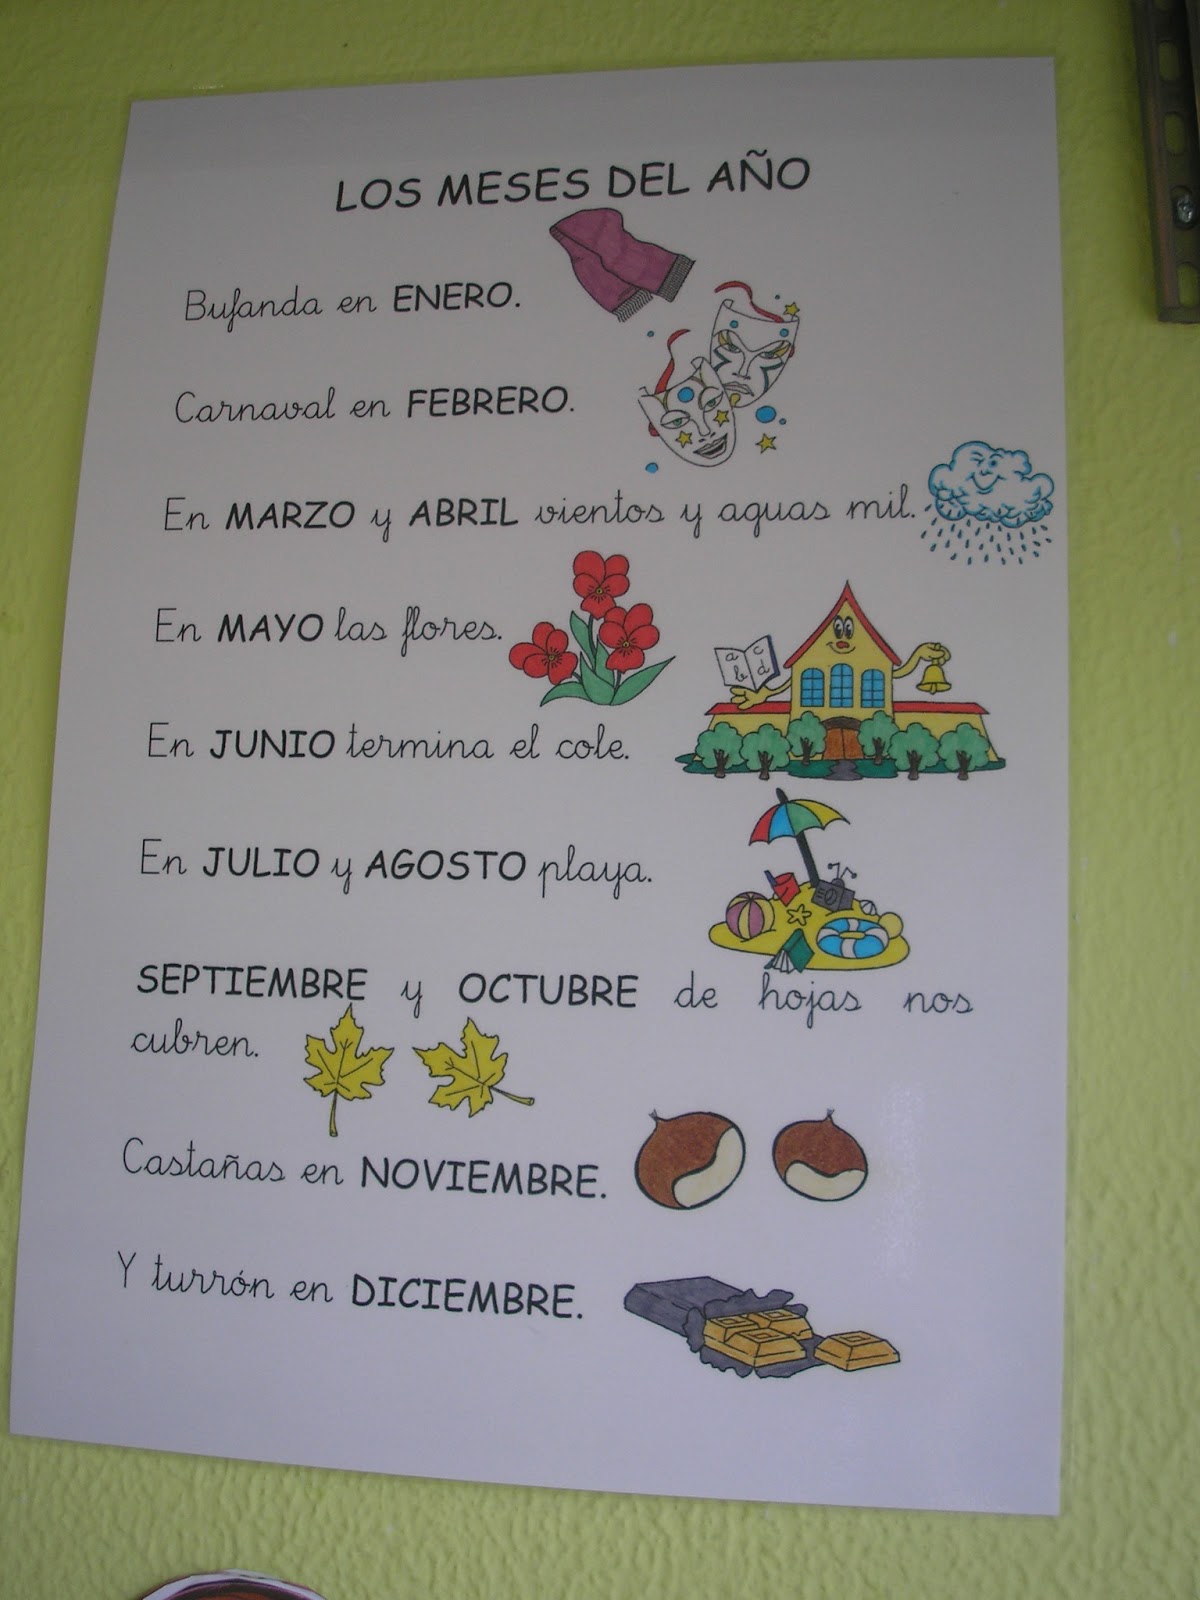 LOS MESES DEL AÑO
Bufanda en ENERO.
Carnaval en FEBRERO.
En MARZO y ABRIL vientos y aguas mil.
En MAYO las flores.
a c
b d
En JUNIO termina el cole.
En JULIO y AGOSTO playa.
SEPTIEMBRE y OCTUBRE de hojas nos
cubren.
Castañas en NOVIEMBRE.
Y turrón en DICIEMBRE.